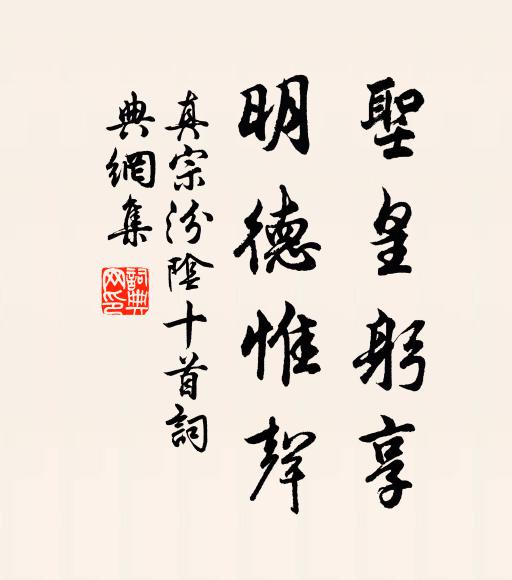 聖皇躬享
明德惟聲
真宗汾陰十首詞
典網集
詞典
网印